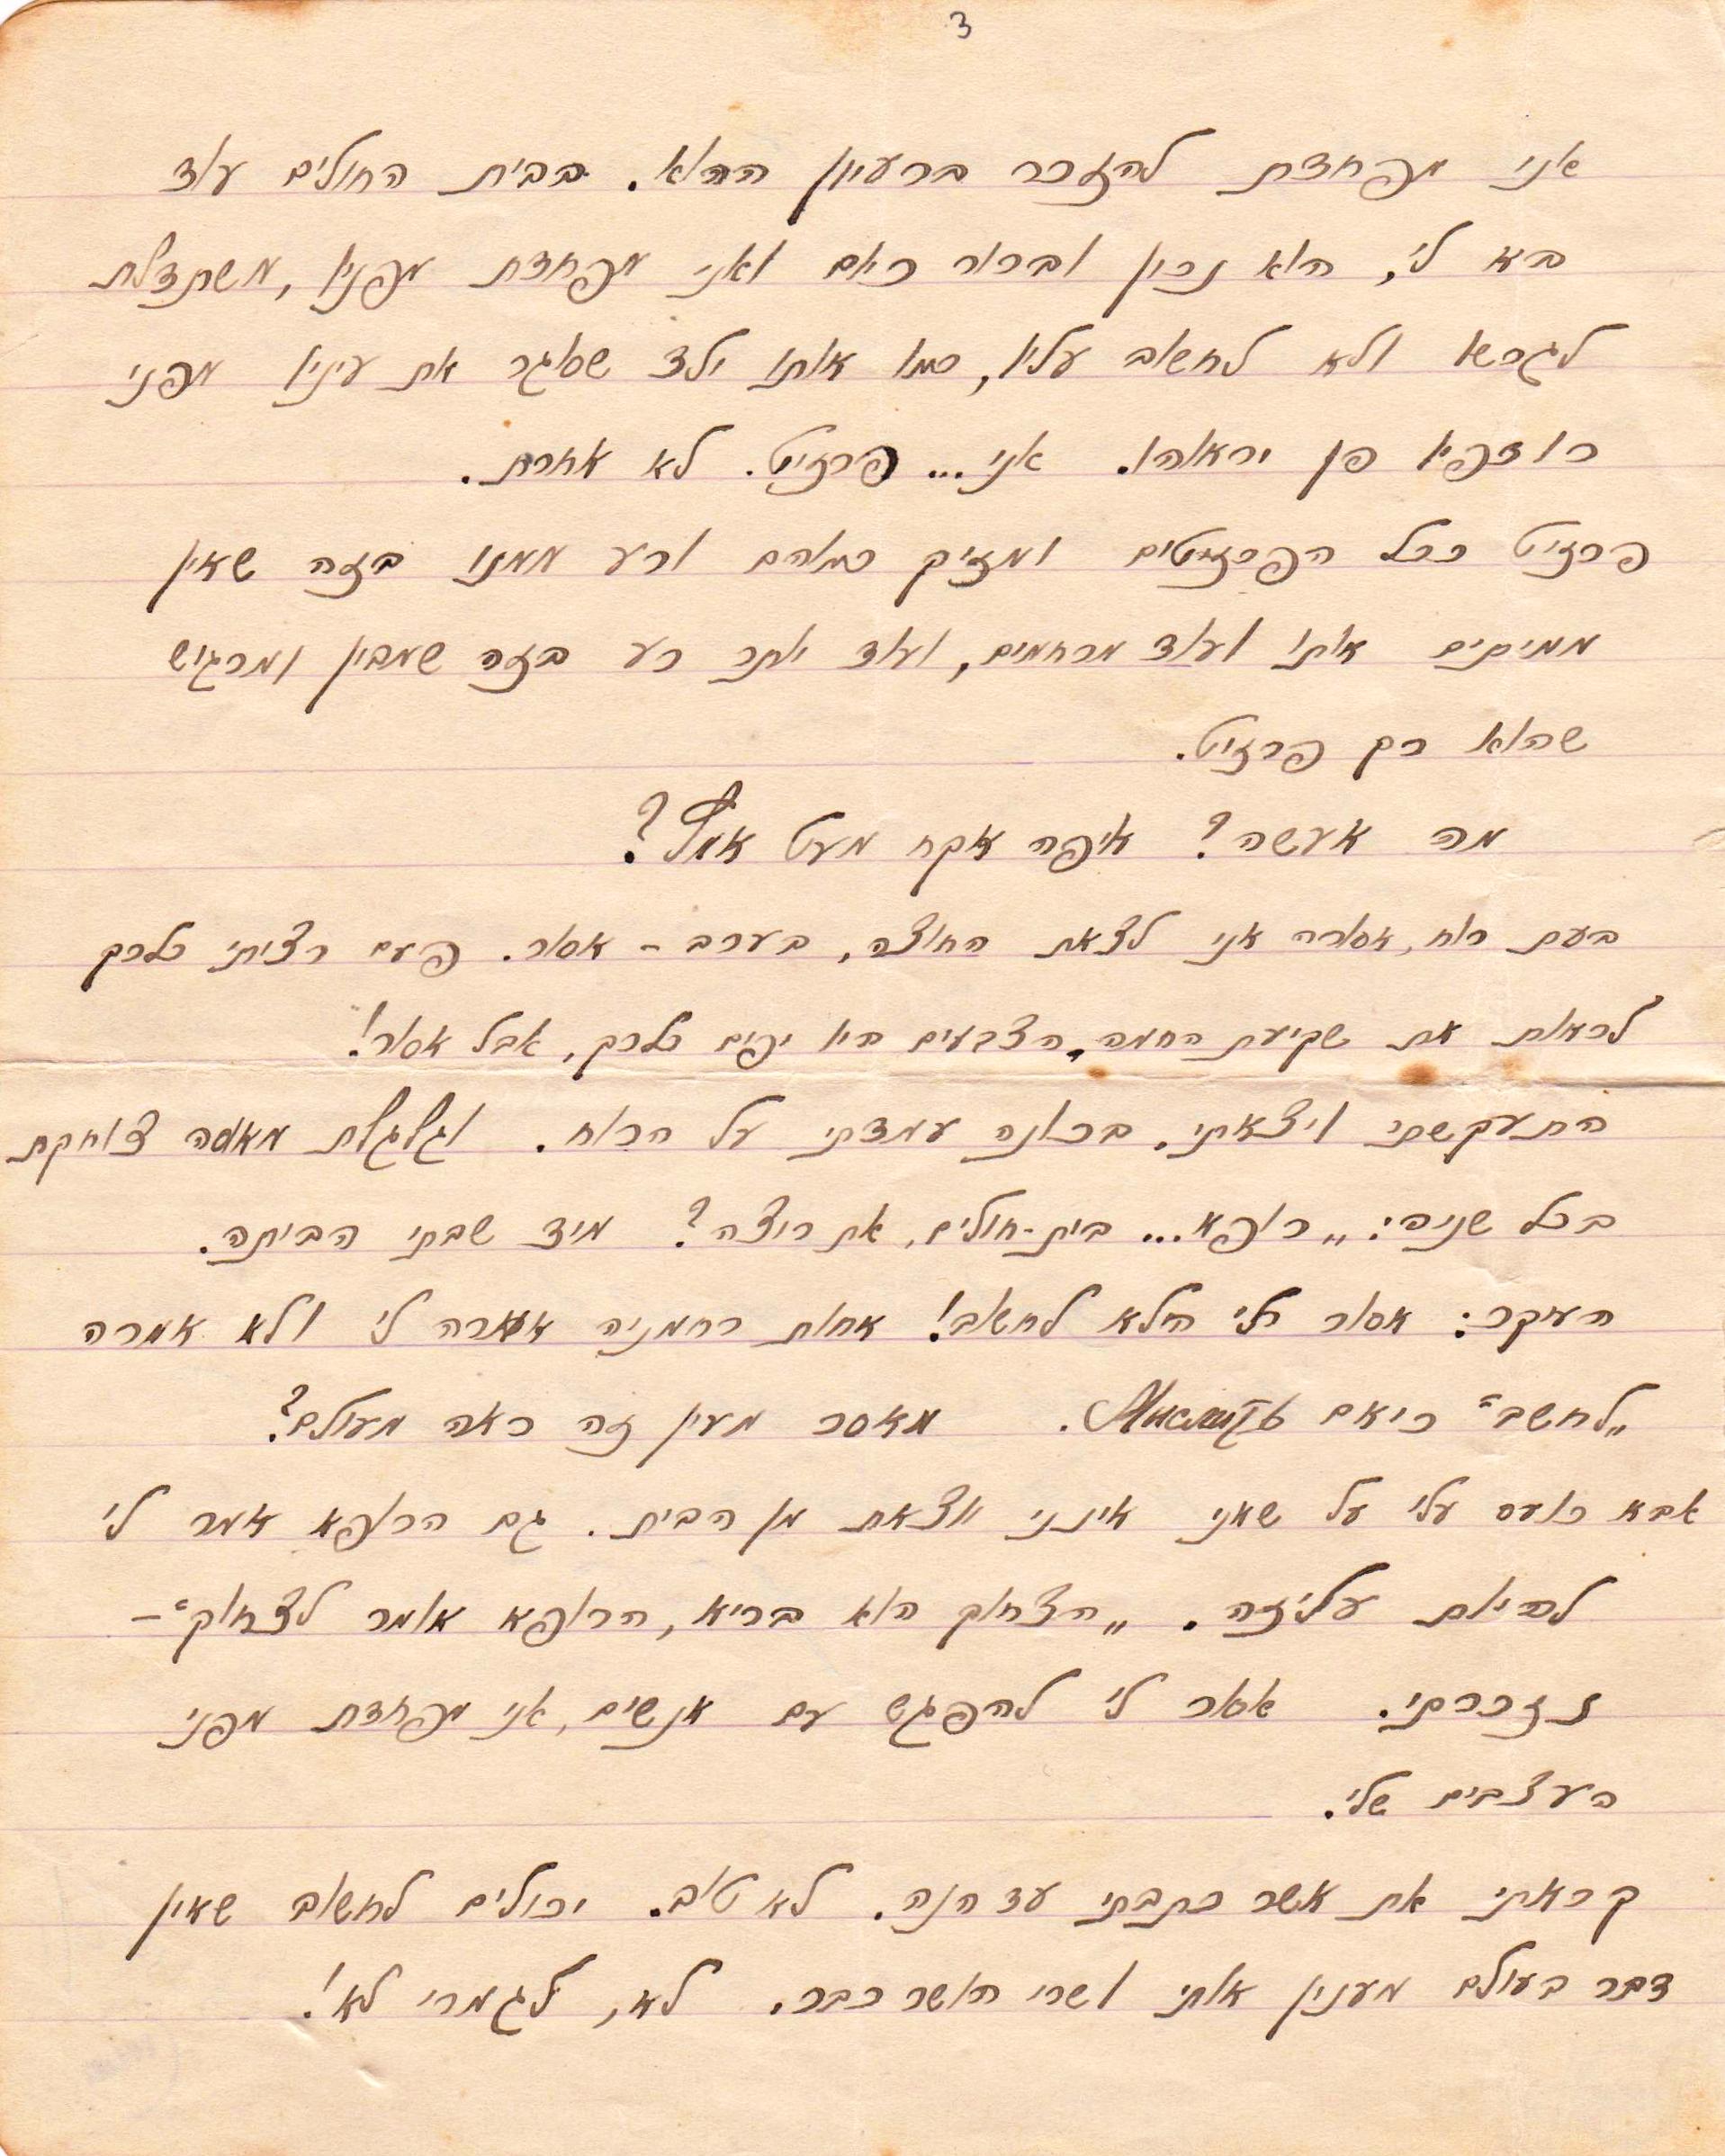 3
אני מפחדת להזכר ברעיון ההוא. בבית החולים עוד
בא לי, הוא נכון וברור כיום ואני מפחדת מפניו, משתדלת
לגרשו ולא לחשוב עליו, כמו אותו ילד שסוגר את עיניו מפני
רודפיו פן יראוהו. אני... פרזיט. לא אחרת.
פרזיט ככל הפרזיטים ומזיק כמוהם ורע ממנו בזה שאין
ממיתים אותו ועוד מרחמים, ועוד יותר רע בזה שמבין ומרגיש
שהוא רק פרזיט.
מה אעשה? איפה אקח מעט אומץ?
בעת רוח, אסורה אני לצאת החוצה, בערב - אסור. פעם רציתי כל כך
לראות את שקיעת החמה, הצבעים היו יפים כל כך, אבל אסור!
התעקשתי ויצאתי. בכונה עמדתי על הרוח. וגלגלת מאוסה צוחקת
בכל שניה: „רופא... בית-חולים, את רוצה? מיד שבתי הביתה.
העיקר: אסור לי הלא לחשוב! אחות רחמניה אמרה לי ולא אמרה
„לחשב" כיאם Мислить. מאסר מעין זה ראה מעולם?
אבא כועס עלי על שאני אינני יוצאת מן הבית. גם הרופא אמר לי
להיות עליזה. „הצחוק הוא בריא, הרופא אומר לצחוק" –
נזכרתי. אסור לי להפגש עם אנשים, אני מפחדת מפני
העצבים שלי.
קראתי את אשר כתבתי עד הנה. לא טוב. יכולים לחשוב שאין
דבר בעולם מענין אותי ושרי הושר כבר. לא, לגמרי לא!